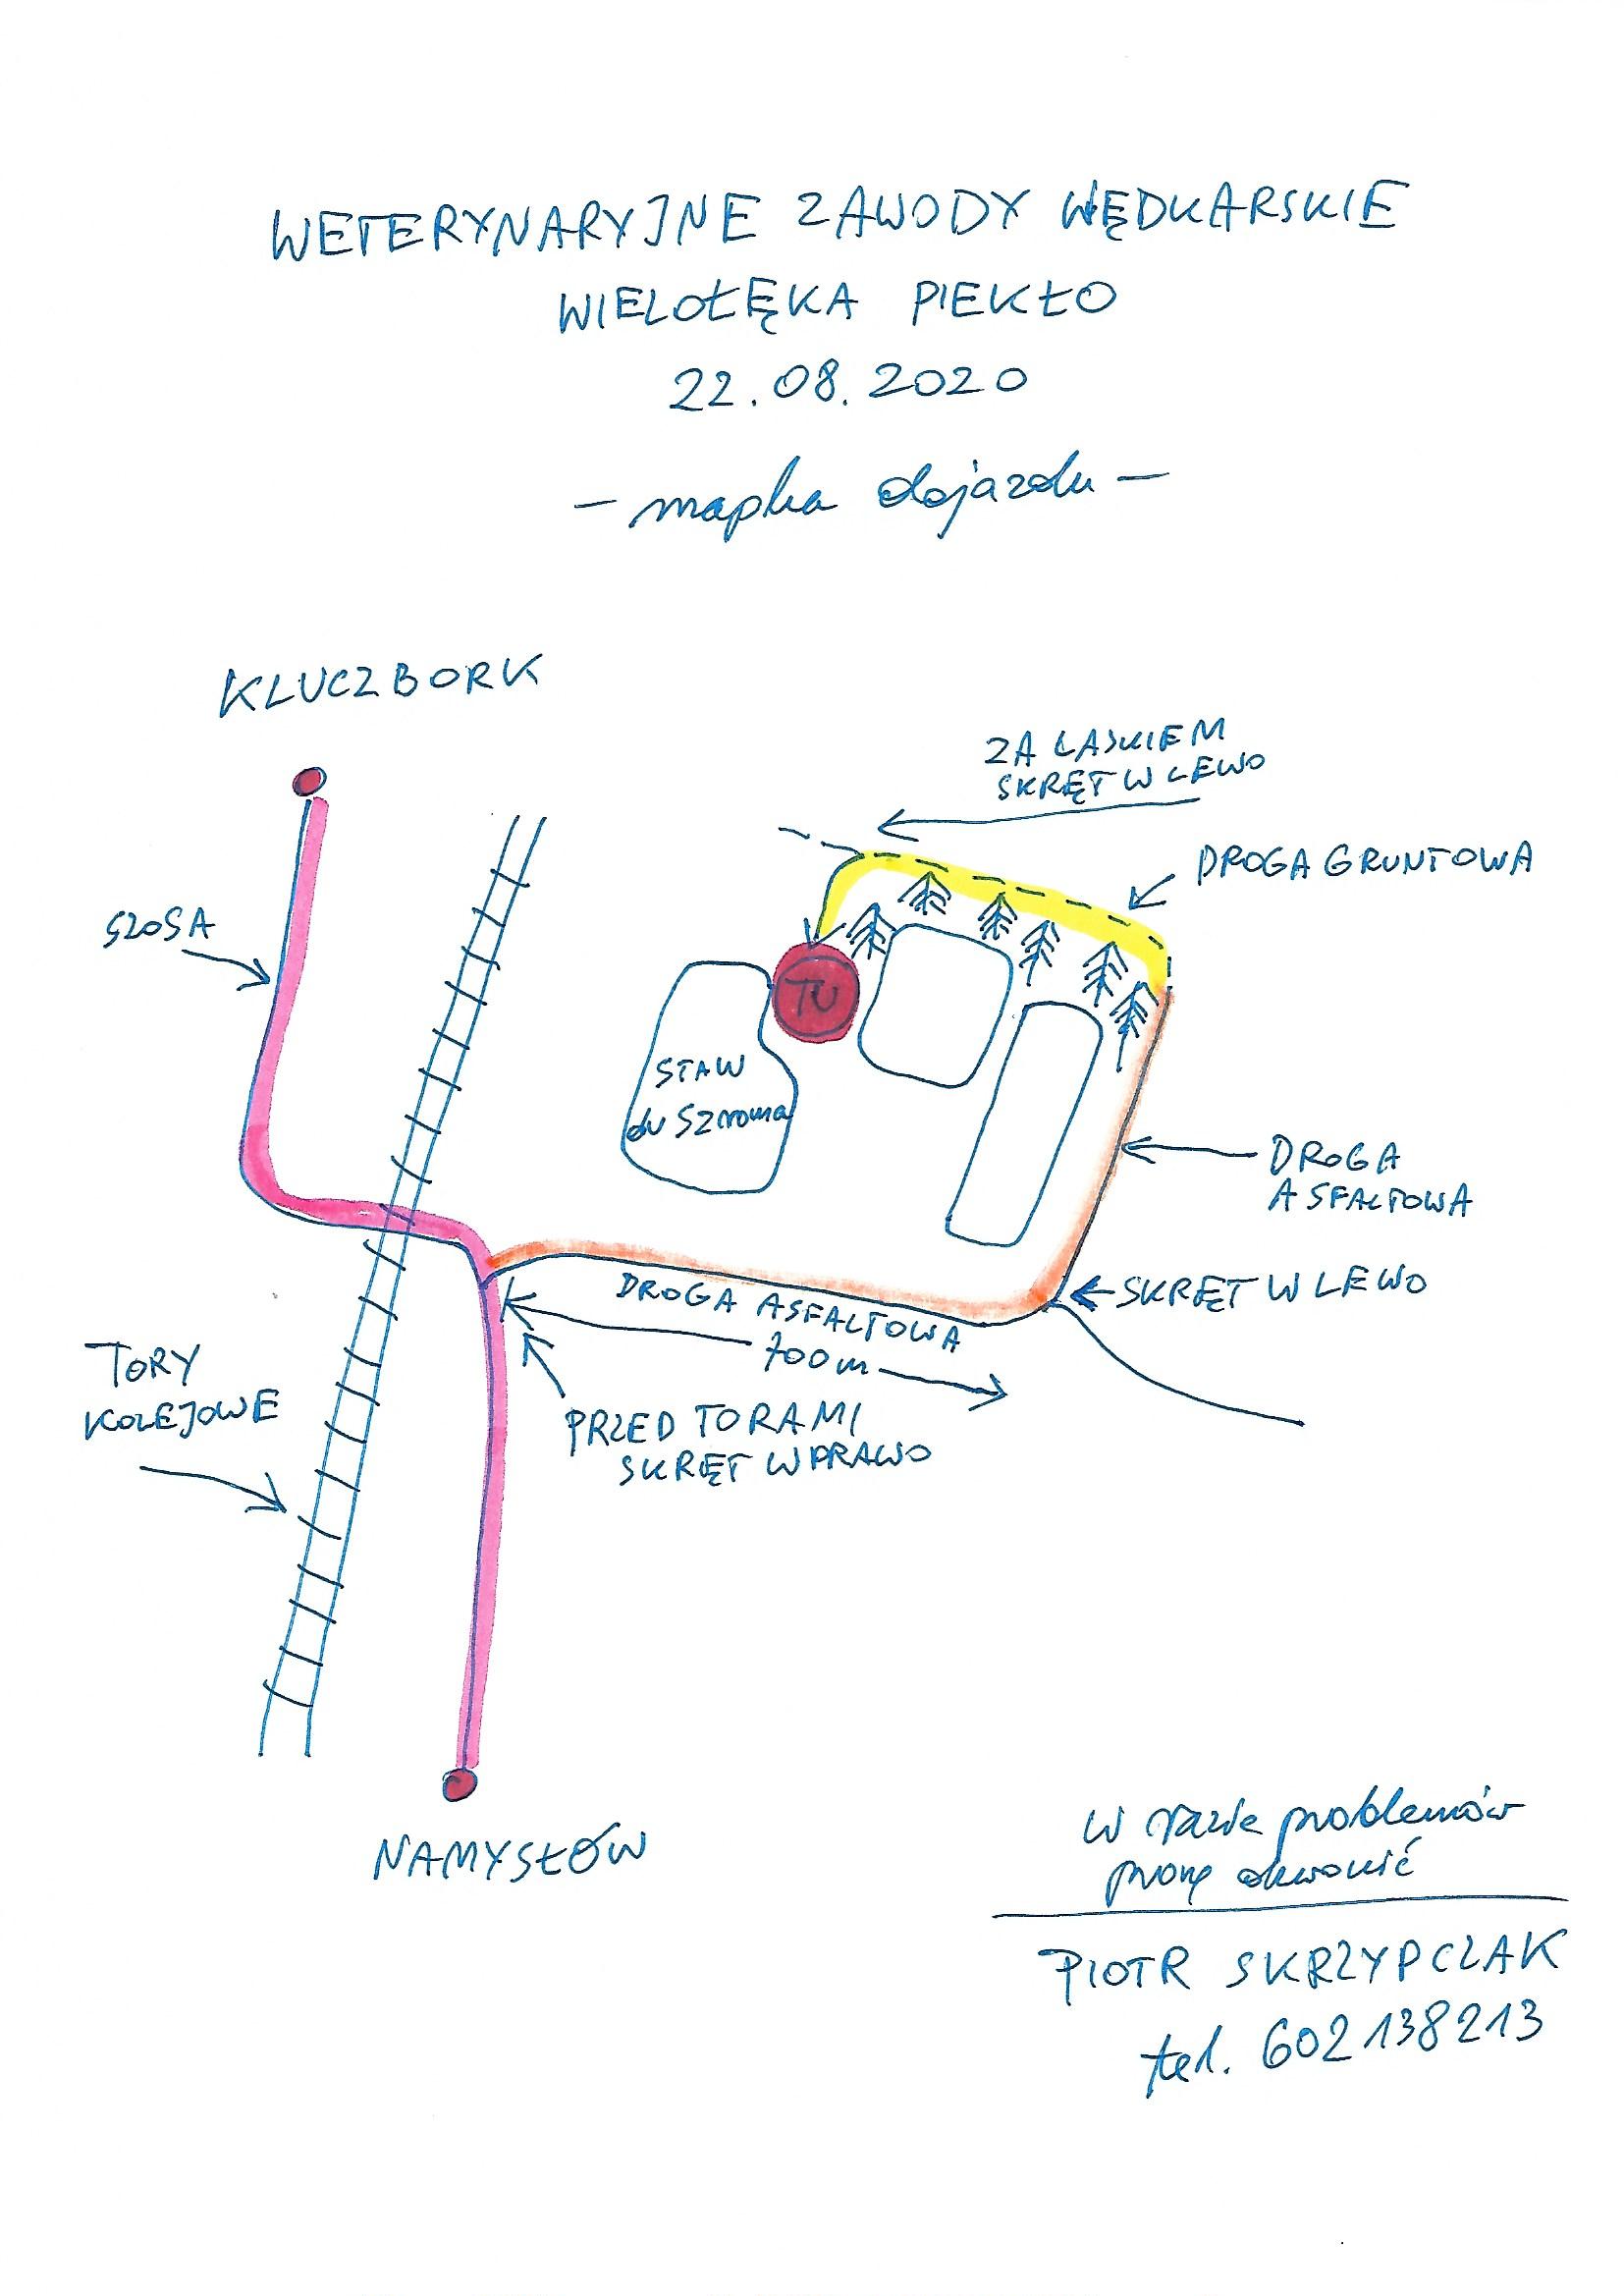 WETERYNARYJNE ZAWODY WĘDKARSKIE
WIELOŁĘKA PIEKŁO
22.08.2020
– mapka dojazdu –
KLUCZBORK
ZA LASKIEM
SKRĘT W LEWO
DROGA GRUNTOWA
SZOSA
TU
STAW
du Sznoma
DROGA
ASFALTOWA
SKRĘT W LEWO
DROGA ASFALTOWA
700m
TORY
KOLEJOWE
PRZED TORAMI
SKRĘT W PRAWO
NAMYSŁÓW
W razie problemów
proszę dzwonić
PIOTR SKRZYPCZAK
tel. 602138213